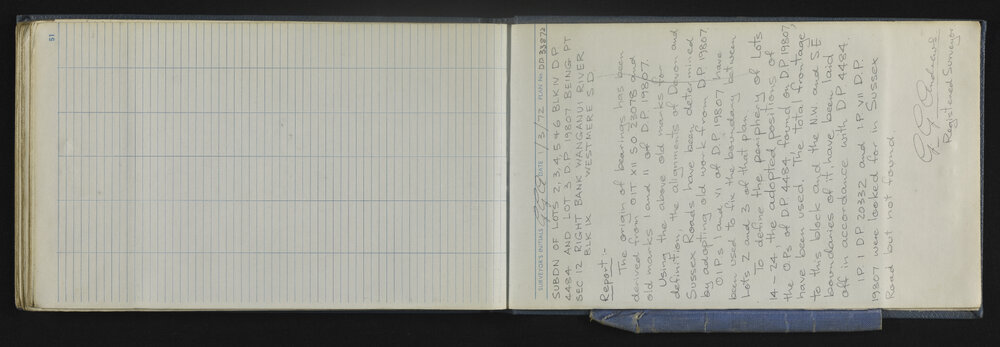 51
SURVEYOR'S INITIALS DATE 1/3/72 PLAN No. DP.33872
SUBDN OF LOTS 2, 3, 4, 5 & 6 BLK IV D.P.
4484 AND LOT 3 D.P. 19807 BEING PT
SEC 12 RIGHT BANK WANGANUI RIVER
BLK IX WESTMERE S.D.
Report :-
The origin of bearings has been
derived from OIT XII SO 23078 and
old marks I and II of D.P. 19807.
Using the above old marks for
definition, the alignments of Devon and
Sussex Roads have been determined
by adopting old work from DP 19807
OIPs I and VI of DP 19807 have
been used to fix the boundary between
Lots 2 and 3 of that plan
To define the periphery of Lots
14 - 24, the adopted positions of
the OPs of DP 4484 found on DP 19807,
have been used. The total frontage
to this block and the NW and S.E
boundaries of it, have been laid
off in accordance with DP 4484.
I.P. I DP 20332 and I.P. VII D.P.
19807 were looked for in Sussex
Road but not found.
Registered Surveyor